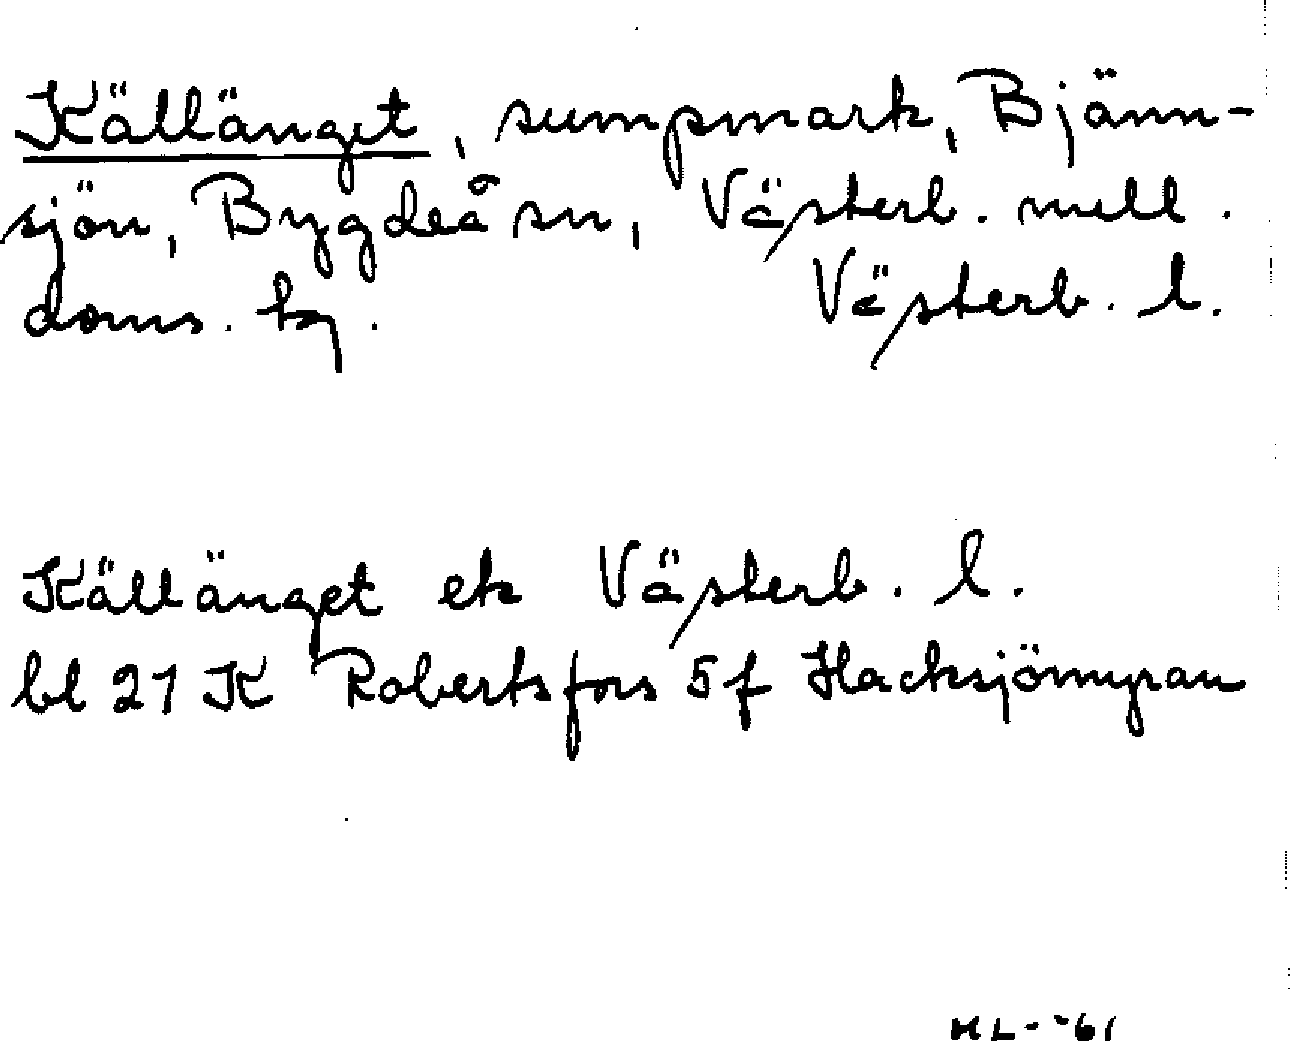 Källänget, sumpmark, Bjänn-
sjön, Bygdeå sn, Västerb. mell.
doms. hj. Västerb. l.
Källänget ek Västerb. l.
bl 21 K Robertsfors 5 f Hacksjömyran
HL - -61